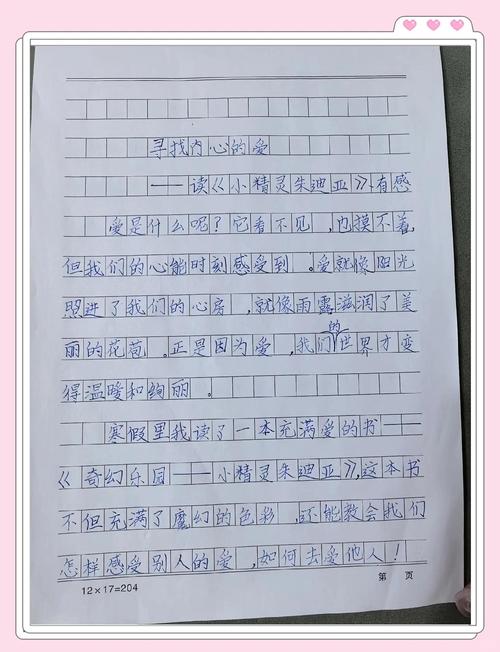 寻找内心的爱
——读《小精灵朱迪亚》有感
爱是什么呢?它看不见,也摸不着
但我们的心能时刻感受到。爱就像阳光
照进了我们的心房,就像雨露滋润了美
丽的花苞。正是因为爱,我们的世界才变
得温暖和绚丽。
寒假里我读了一本充满爱的书——
《奇幻乐园——小精灵朱迪亚》,这本书
不但充满了魔幻的色彩,还能教会我们
怎样感受别人的爱,如何去爱他人!
12×17=204
第 页